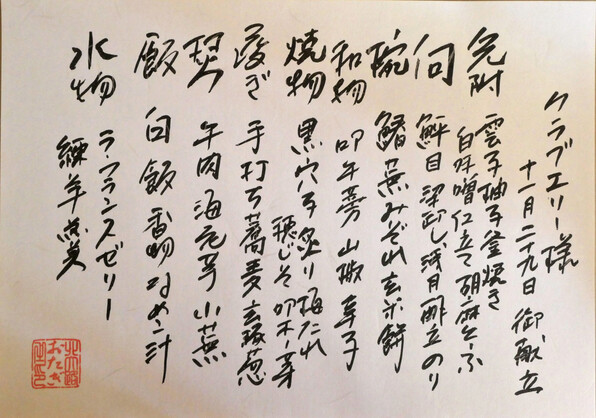 クラブエリー様
十一月二十九日 御献立
先附 雲子柚子釜焼き
白味噌仕立て 胡麻とふ
向 卸し 浅月
椀 鰆 蕪みぞれ 玄米餅
和物 叩牛蒡 山椒
焼物 黒穴子炙り 梅たれ
穂じそ 叩木ノ芽
凌ぎ 手打ち蕎麦 葱
焚 牛肉 海老芋 小蕪
飯 白飯 香物 なめこ汁
水物 ラ・フランスゼリー
練羊羹
おたぎ